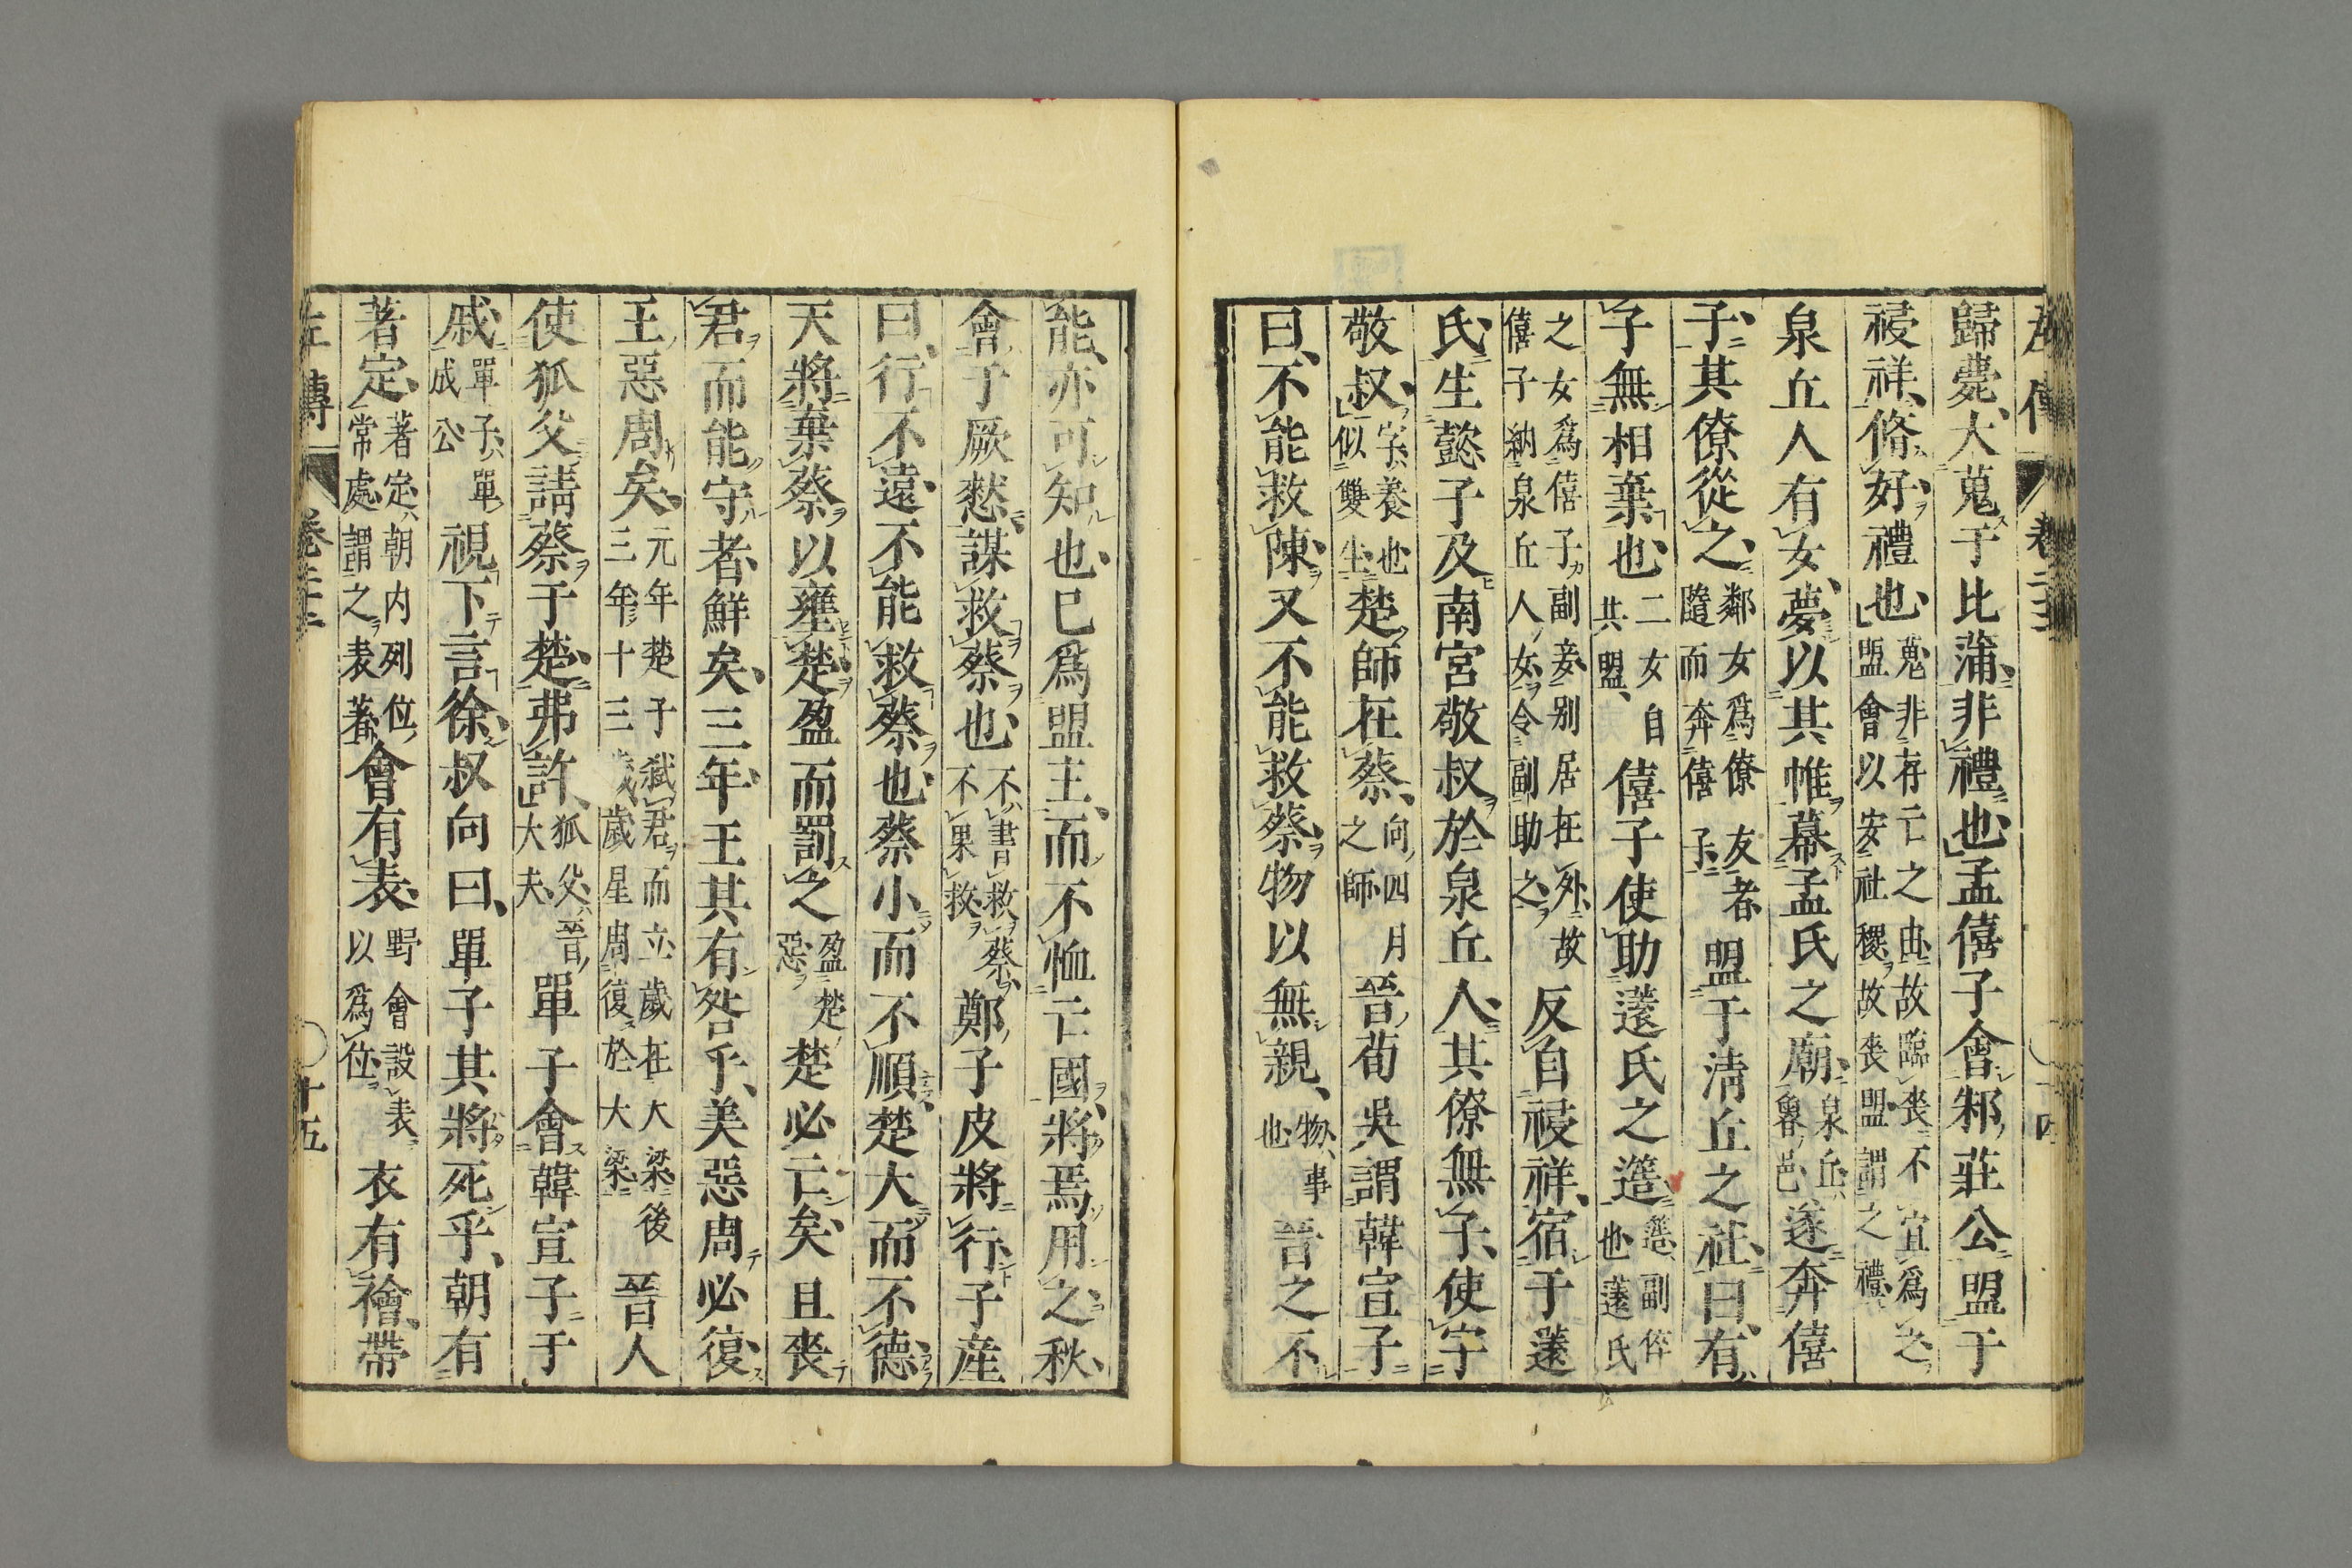 歸薨大蒐于比蒲非禮也孟僖子會邾莊公盟于
祲祥脩好禮也蒐非存亡之由故臨喪不宜爲之盟會以安社稷故喪盟謂之禮
泉丘人有女夢以其帷幕孟氏之廟泉丘魯邑遂奔僖
子其僚從之鄰女爲僚友者隨而奔僖子盟于淸丘之社曰有
子無相棄也二女自共盟僖子使助薳氏之簉簉副倅也薳氏
之女爲僖子副妾别居在外故僖子納泉丘人女令副助之反自祲祥宿于薳
氏生懿子及南宮敬叔於泉丘人其僚無子使字
敬叔字養也似雙生楚師在蔡向四月之師晉荀吳謂韓宣子
曰不能救陳又不能救蔡物以無親物事也晉之不
能亦可知也巳爲盟主而不恤亡國將焉用之秋
會于厥憖謀救蔡也不書救蔡不果救鄭子皮將行子産
曰行不遠不能救蔡也蔡小而不順楚大而不德
天將棄蔡以壅楚盈而罰之盈楚惡楚必亡矣且喪
君而能守者鮮矣三年王其有咎乎美惡周必復
王惡周矣元年楚子弑君而立歲在大梁後三年十三歲歲星周復於大梁晉人
使狐父請蔡于楚弗許狐父晉大夫單子會韓宣子于
戚單子單成公視下言徐叔向曰單子其將死乎朝有
著定著定朝内列位常處謂之表著會有表野會設表以爲位衣有襘帶
左傳 卷二十二 十五